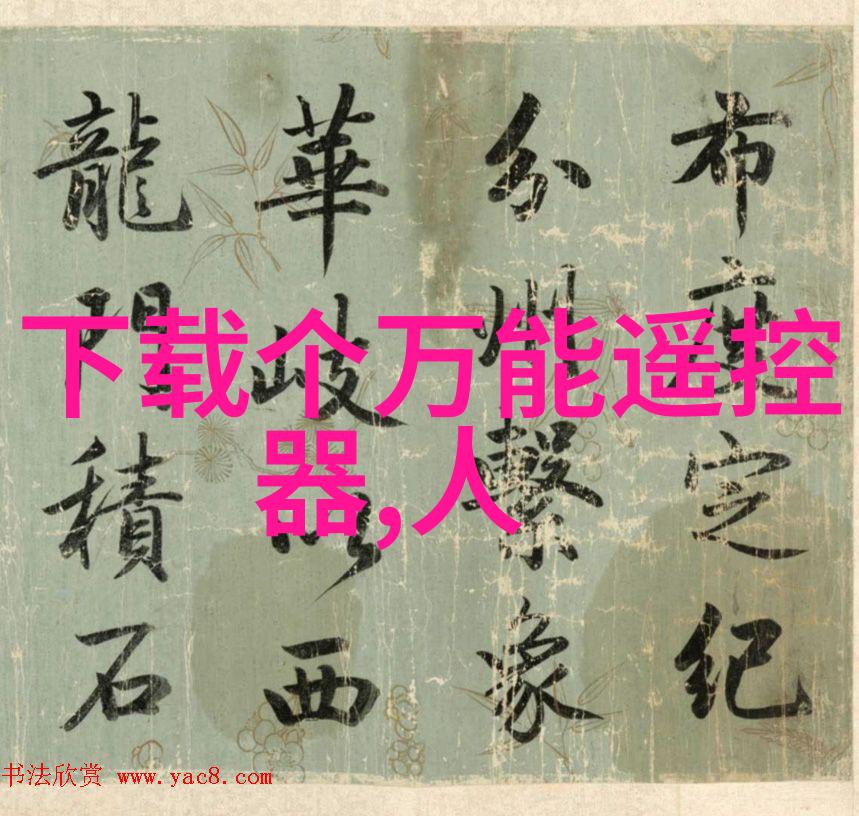 布度定紀
分州繫象
華岐以西
龍門積石
下载个万能遥控
器,人
书法欣赏 www.yac8.com